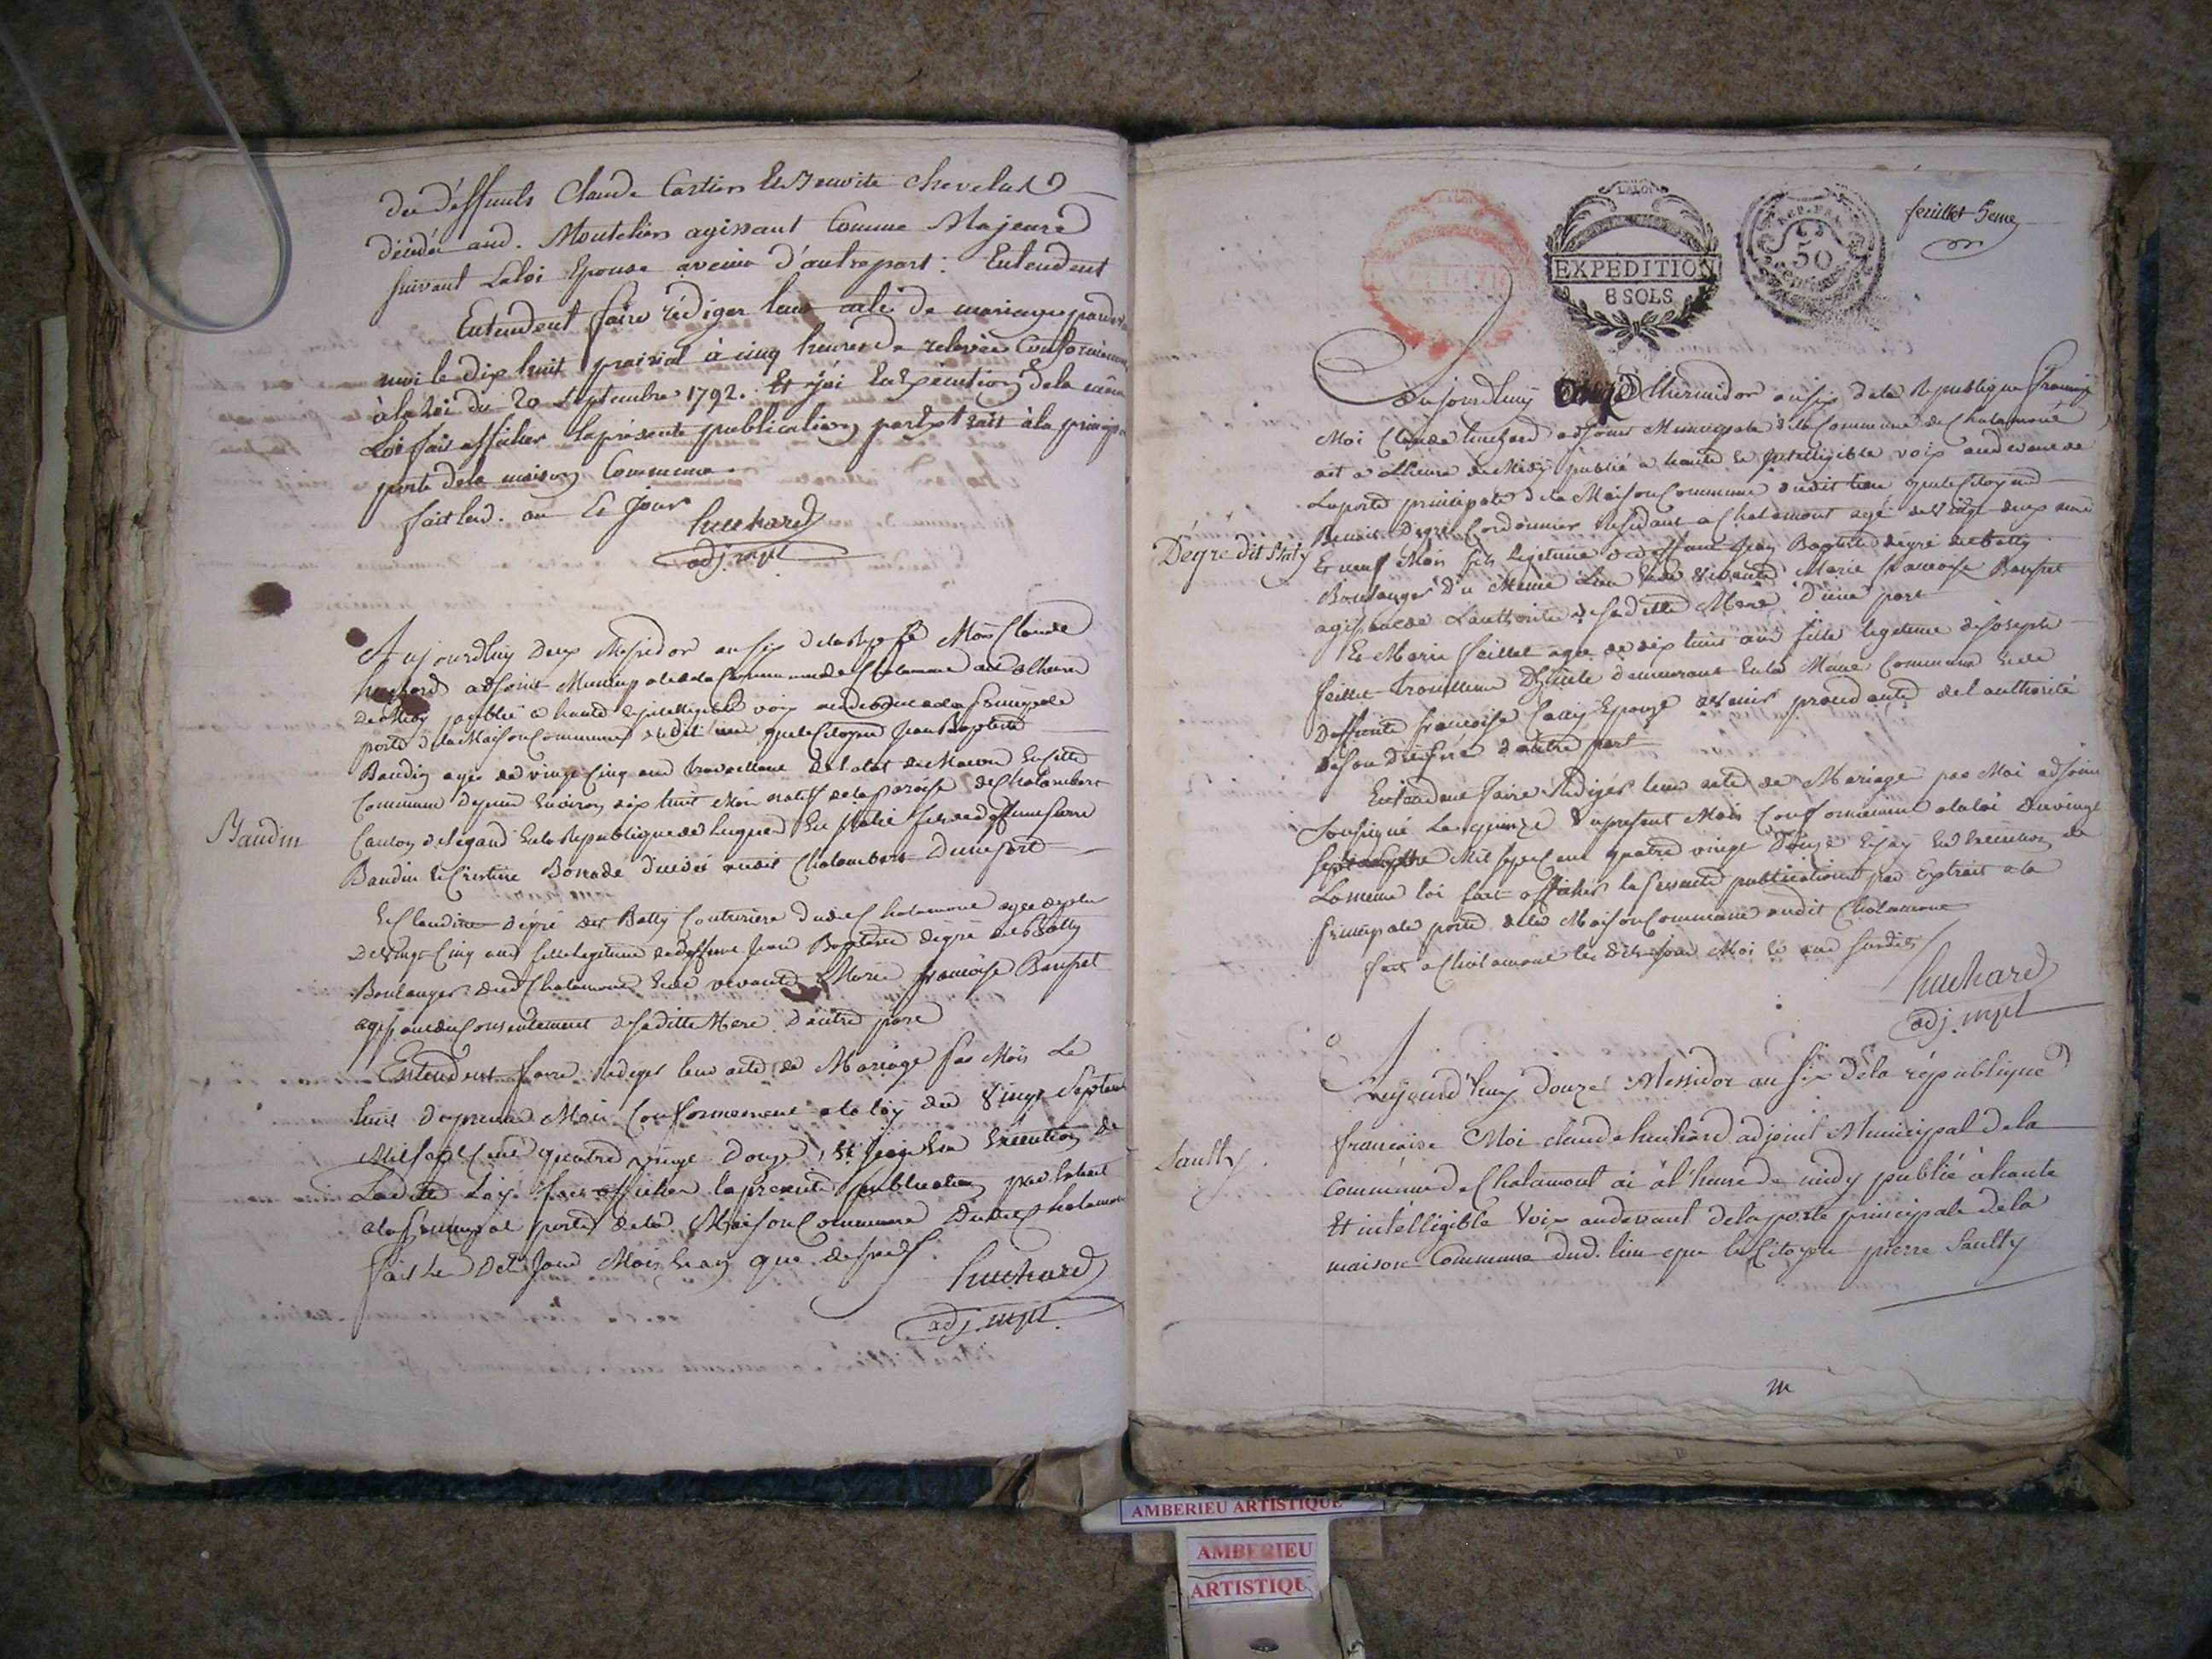 de deffunts Claude Cartier Et Benoite Chevelut
décédés aud. Montelier agissant Comme Majeure
suivant La loi Epouse avenir d'autre part : Entendent
Entendent faire rédiger leur acte de mariage par
moi le dix huit prairial à cinq heures de relevée Conformément
à la Loi du 20 Septembre 1792. Et j'ai En Exécution de la même
Loi fait afficher la présente publication par Extrait à la principale
porte de la maison Commune.
fait Led. an Et Jour
huchard
adj. mpl
Aujourdhuy deux Messidor an six de la Rep fse Moi Claude
huchard adjoint Municipale de la Commune de Chalamont ait a Lheure
de Midy publié a haute & intelligible voix au devant de la principale
porte de la Maison Commune dudit lieu que le Citoyen Jean Baptiste
Baudin agé de vingt Cinq ans travailleur de Letat de Macon En cette
Commune depuis Environ dix huit Mois natif de la paroisse de Chalambert
Canton de Legand En la Republique de Luques En Italie fils de deffunt pierre
Baudin & Cristine Borade audit Chalambert Dune part
Baudin
Et Claudine dégré dit Batty Couturiere dudit Chalamont agée de plus
De Vingt Cinq ans fille legitime de deffunt Jean Baptiste dégré dit Batty
Boulanger dud Chalamont & de vivante Marie françoise Baufret
agissant du Consentement de sa ditte Mere d'autre part
Entendent faire Rediger leur acte de Mariage par Moi Le
huit du present Mois Conformement a la loy du Vingt Septembre
Mil sept Cent quatre vingt Douze, Et j'ai En Execution de
La dite Loy fait afficher la présente publication par Extrait
a la principal porte de la Maison Commune dudit Chalamont
fait Le dit Jour Mois & an que dessus
huchard
adj. mpl.
LALOI
EXPEDITION
8 SOLS
REP. FRA
50
feuillet 5eme
Aujourdhuy Thermidor an six de la Republique française
Moi Claude huchard adjoint Municipale de la Commune de Chalamont
ait a Lheure de Midy publié a haute & intelligible voix au devant de
La porte principale de la Maison Commune dudit lieu que le Citoyen
Benoit Dégré Cordonnier Residant a Chalamont agé de Vingt deux ans
Dégré dit Batty
Et neuf Mois fils legitime de deffunt Jean Baptiste dégré dit Batty
Boulanger du Meme Lieu & de Vivante Marie françoise Baufret
agissant de L'authorité de sa ditte Mere d'une part
Et Marie feillet agée de dix huit ans fille legitime de Joseph
feillet demeurant En la Meme Commune & de
Deffunte françoise Epouse avenir procedante de l'authorité
de son dit Pere d'autre part
Entendent faire Rediger leur acte de Mariage par Moi adjoint
Sousigné Le quinze du present Mois Conformement a la loi du vingt
Septembre Mil sept Cent quatre vingt Douze & j'ay En Execution de
La meme loi fait afficher la presente publication par Extrait a la
principale porte de la Maison Commune audit Chalamont
fait a Chalamont les dits jour Moi et an susdits
huchard
adj. mpl
Aujourd'huy douze Messidor an six de la république
française Moi claude huchard adjoint Municipal de la
Saulty
commune de Chalamont ai à l'heure de midy publié à haute
Et intelligible Voix au devant de la porte principale de la
maison Commune dud. lieu que le Citoyen pierre Saulty
AMBERIEU ARTISTIQUE
AMBERIEU
ARTISTIQU